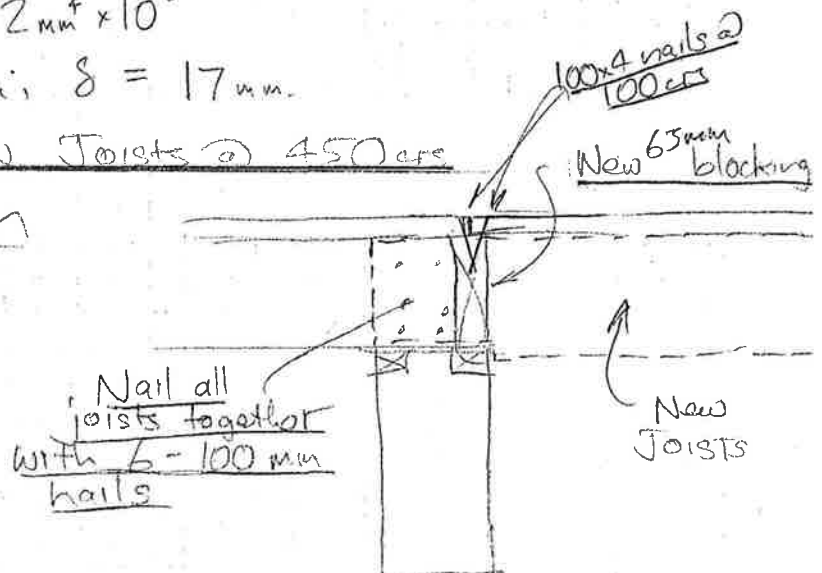 2 mm⁴ × 10
δ = 17 mm.
Joists @ 450 crs
100x4 nails @
100 crs
New 65mm
blocking
Nail all
joists together
with 6 - 100 mm
nails
New
JOISTS